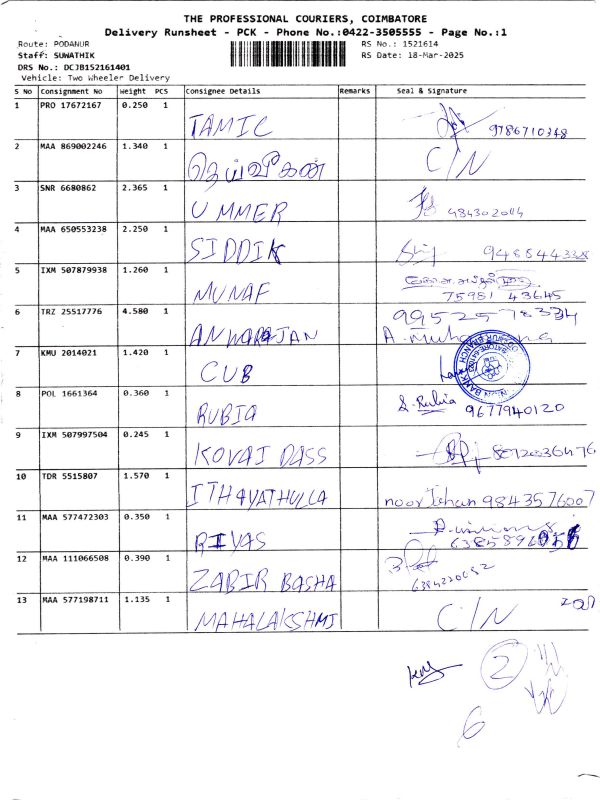 THE PROFESSIONAL COURIERS, COIMBATORE
Delivery Runsheet - PCK - Phone No.:0422-3505555 - Page No.:1
Route: PODANUR RS No.: 1521614
Staff: SUWATHIK RS Date: 18-Mar-2025
DRS No.: DCJB152161401
Vehicle: Two Wheeler Delivery
S No Consignment No Weight PCS Consignee Details Remarks Seal & Signature
1 PRO 17672167 0.250 1 TAMIC 9786710348
2 MAA 869002246 1.340 1 தெய்வீகன் C/N
3 SNR 6680862 2.365 1 UMMER
4 MAA 650553238 2.250 1 SIDDIK
5 IXM 507879938 1.260 1 MUNAF 75981 43645
6 TRZ 25517776 4.580 1 ANWARAJAN
7 KMU 2014021 1.420 1 CUB
8 POL 1661364 0.360 1 RUBIA S. Rubia 9677940120
9 IXM 507997504 0.245 1 KOVAI DASS
10 TDR 5515807 1.570 1 ITHAYATHULLA noor Jahan 9843576007
11 MAA 577472303 0.350 1 RIYAS
12 MAA 111066508 0.390 1 ZABIR BASHA
13 MAA 577198711 1.135 1 MAHALAKSHMI C/N
2
6